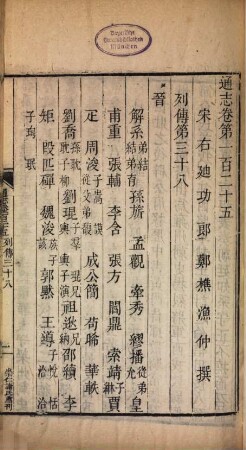 Bayerische
Staatsbibliothek
München
通志卷第一百二十五
宋右迪功郎鄭樵漁仲撰
列傳第三十八
晉
解系弟結結弟育 孫旂 孟觀 牽秀 繆播從弟允 皇
甫重 張輔 李含 張方 閻鼎 索靖子綝 賈
疋 周浚子嵩謨從父弟馥 成公簡 苟晞 華軼
劉喬孫耽耽子柳 劉琨子羣琨兄輿輿子演 祖逖兄納 邵續 李
矩 段匹磾 魏浚族子該 郭默 王導子悅恬洽洽
子珣珉
列傳三十八